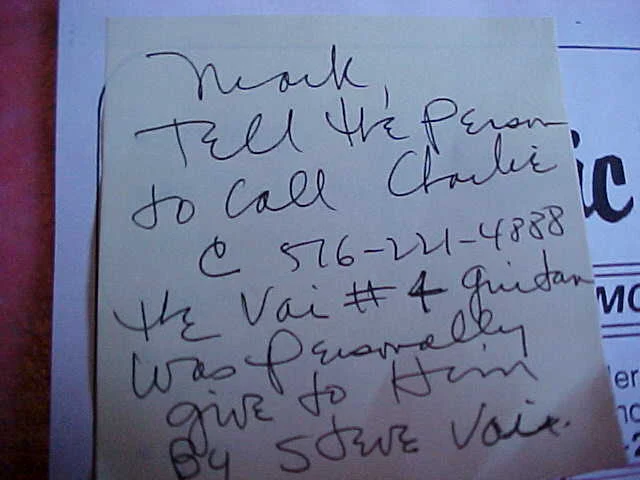 Mark,
Tell the Person
to Call Charlie
@ 516-221-4888
the Vai # 4 guitar
was Personally
give to Him
By Steve Vai.
ic
MO
er